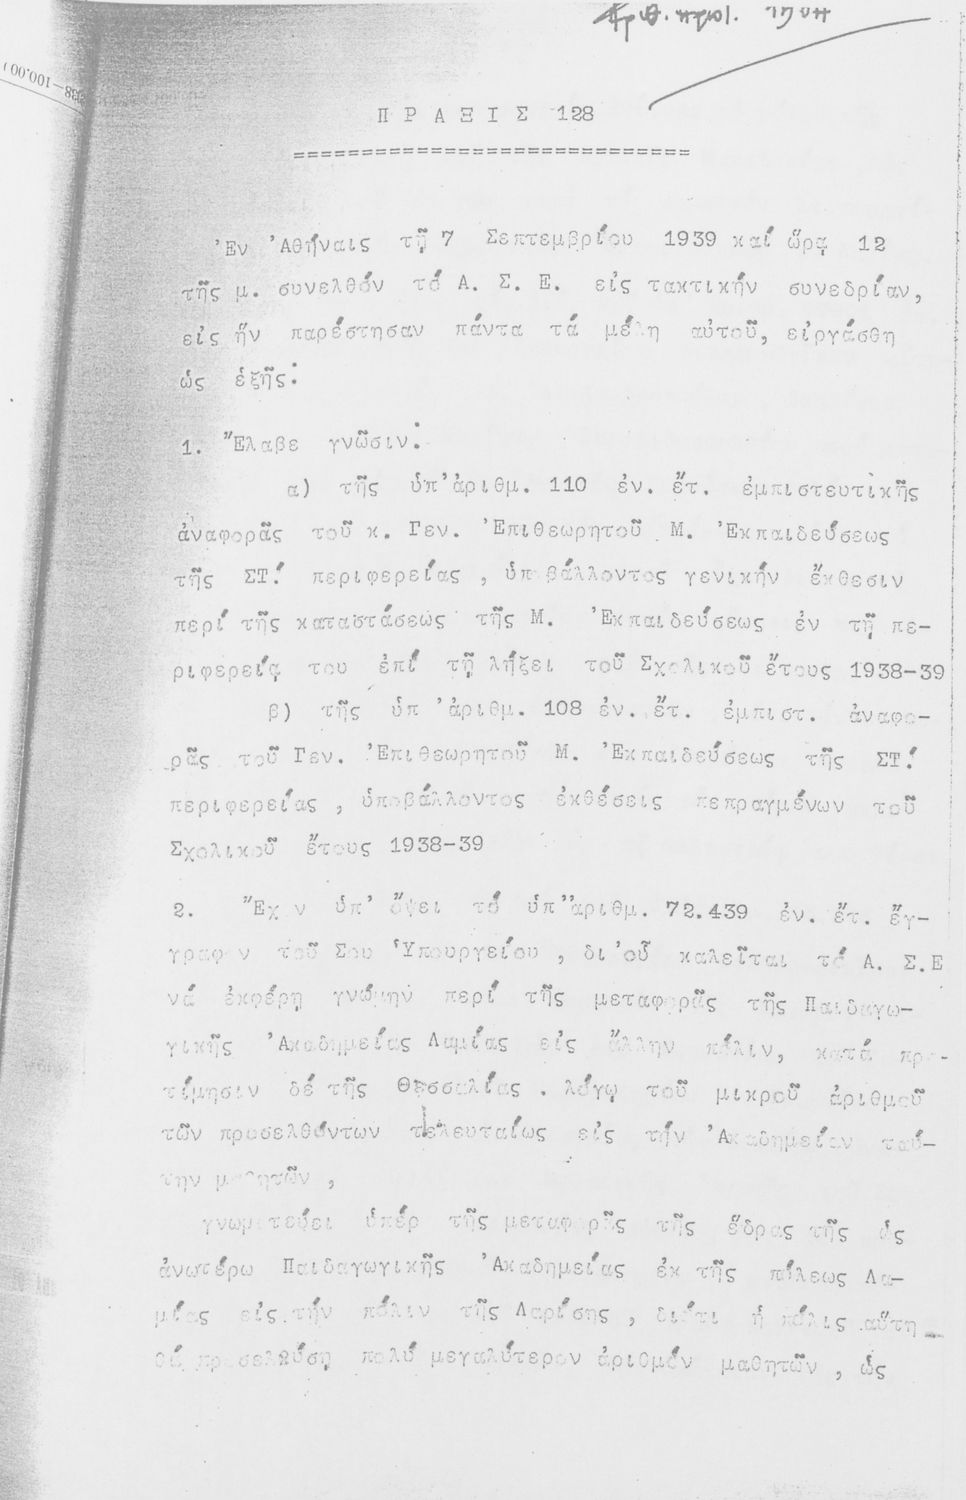 Π Ρ Α Ξ Ι Σ 128
=============================
Ἐν Ἀθήναις τῇ 7 Σεπτεμβρίου 1939 καί ὥρᾳ 12
τῆς μ. συνελθόν τό Α. Σ. Ε. εἰς τακτικήν συνεδρίαν,
εἰς ἥν παρέστησαν πάντα τά μέλη αὐτοῦ, εἰργάσθη
ὡς ἑξῆς:
1. Ἔλαβε γνῶσιν:
α) τῆς ὑπ' ἀριθμ. 110 ἐν. ἔτ. ἐμπιστευτικῆς
ἀναφορᾶς τοῦ κ. Γεν. Ἐπιθεωρητοῦ Μ. Ἐκπαιδεύσεως
τῆς ΣΤ! περιφερείας , ὑποβάλλοντος γενικήν ἔκθεσιν
περί τῆς καταστάσεως τῆς Μ. Ἐκπαιδεύσεως ἐν τῇ πε-
ριφερείᾳ του ἐπί τῇ λήξει τοῦ Σχολικοῦ ἔτους 1938-39
β) τῆς ὑπ 'ἀριθμ. 108 ἐν. ἔτ. ἐμπιστ. ἀναφο-
ρᾶς τοῦ Γεν. Ἐπιθεωρητοῦ Μ. Ἐκπαιδεύσεως τῆς ΣΤ!
περιφερείας , ὑποβάλλοντος ἐκθέσεις πεπραγμένων τοῦ
Σχολικοῦ ἔτους 1938-39
2. Ἔχον ὑπ' ὄψει τό ὑπ' ἀριθμ. 72.439 ἐν. ἔτ. ἔγ-
γραφον τοῦ Σου Ὑπουργείου , δι' οὗ καλεῖται τό Α. Σ.Ε
νά ἐκφέρῃ γνώμην περί τῆς μεταφορᾶς τῆς Παιδαγω-
γικῆς Ἀκαδημείας Λαμίας εἰς ἄλλην πόλιν, κατά προ-
τίμησιν δέ τῆς Θεσσαλίας . λόγῳ τοῦ μικροῦ ἀριθμοῦ
τῶν προσελθόντων τελευταίως εἰς τήν Ἀκαδημείαν ταύ-
την μαθητῶν ,
γνωματεύει ὑπέρ τῆς μεταφορᾶς τῆς ἕδρας τῆς ὡς
ἀνωτέρω Παιδαγωγικῆς Ἀκαδημείας ἐκ τῆς πόλεως Λα-
μίας εἰς τήν πόλιν τῆς Λαρίσης , διότι ἡ πόλις αὕτη
θά προσελκύσῃ πολύ μεγαλύτερον ἀριθμόν μαθητῶν , ὡς